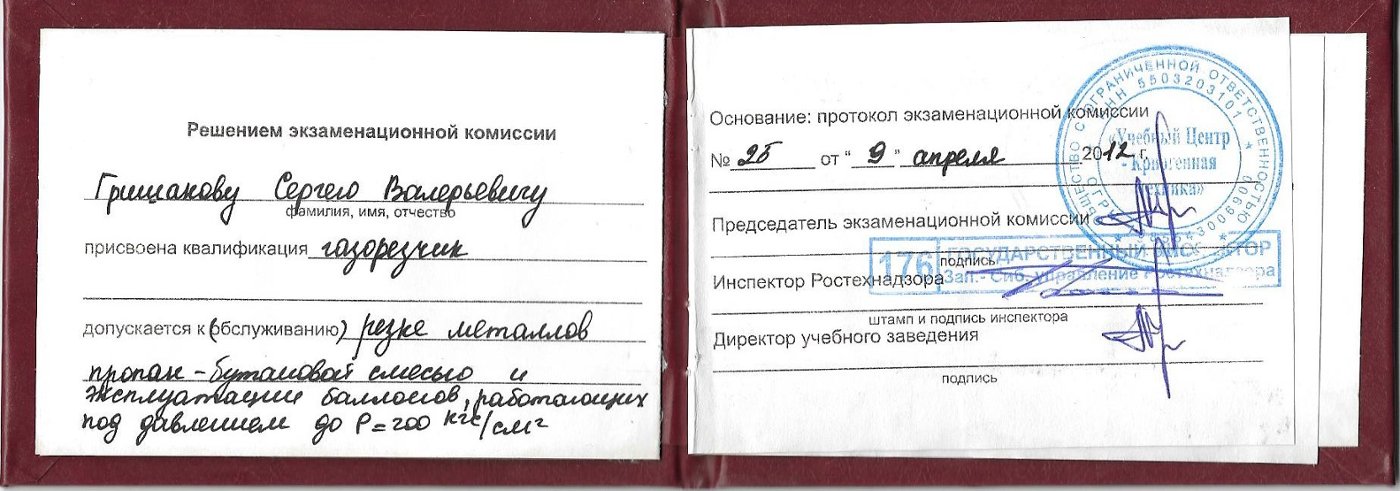 Решением экзаменационной комиссии
Гришакову Сергею Валерьевичу
фамилия, имя, отчество
присвоена квалификация газорезчик
допускается к (обслуживанию) резке металлов
пропан-бутановой смесью и
эксплуатации баллонов, работающих
под давлением до P=200 кгс/см²
Основание: протокол экзаменационной комиссии
№ 25 от "9" апреля 2012 г.
Председатель экзаменационной комиссии
подпись
Инспектор Ростехнадзора
штамп и подпись инспектора
Директор учебного заведения
подпись
ОБЩЕСТВО С ОГРАНИЧЕННОЙ ОТВЕТСТВЕННОСТЬЮ
ИНН 5503203101
«Учебный Центр
- Криогенная
техника»
176 ГОСУДАРСТВЕННЫЙ ИНСПЕКТОР
Зап.- Сиб. управление Ростехнадзора